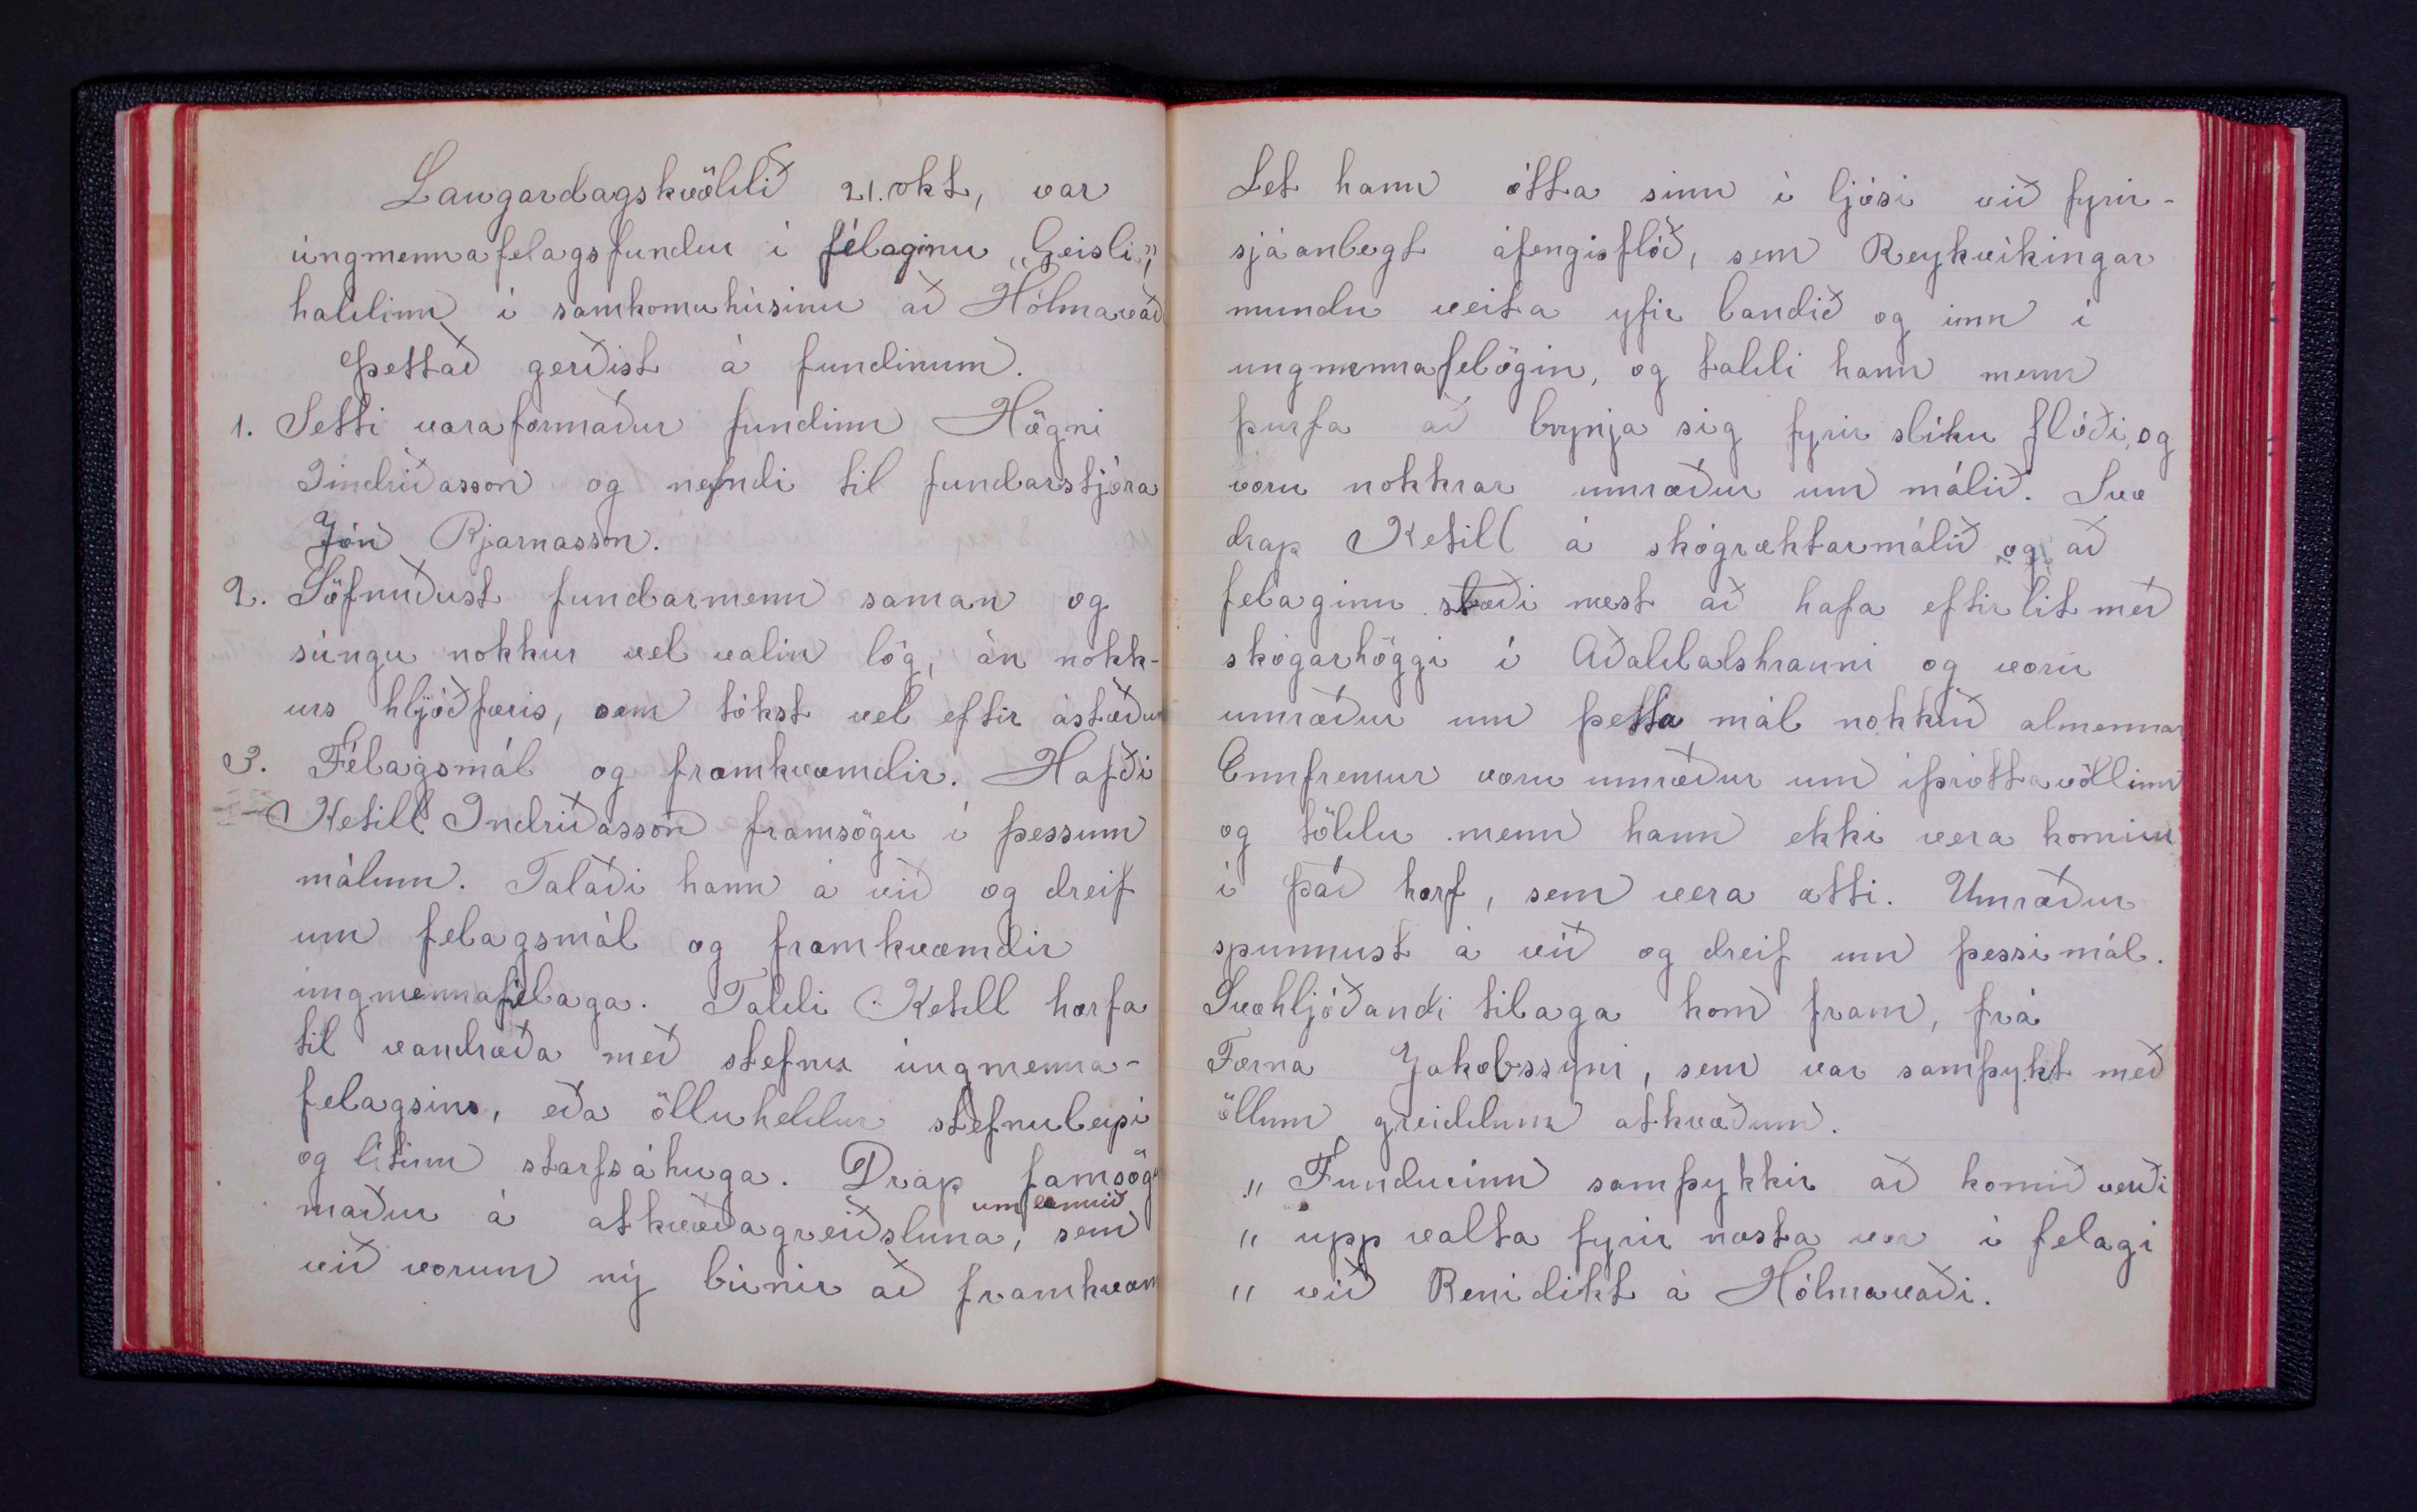 Laugardagskvöldið 21. okt, var
úngmennafelagsfundur í félaginu „Geisli",
haldinn í samkomuhúsinu að Hólmavaði
Þettað gerðist á fundinum.
1. Setti varaformaður fundinn Högni
Indriðasson og nefndi til fundarstjóra
Jón Bjarnasson.
2. Söfnuðust fundarmenn saman og
súngu nokkur vel valin lög, án nokk-
urs hljóðfæris, sem tókst vel eftir ástæðum
3. Félagsmál og framkvæmdir. Hafði
Ketill Indriðasson framsögu í þessum
málum. Talaði hann á við og dreif
um felagsmál og framkvæmdir
úngmennafélaga. Taldi Ketill horfa
til vandræða með stefnu úngmenna-
felagsins, eða ölluheldur stefnuleysi
og litinn starfsáhuga. Drap famsögu
maður á atkvæðagreiðsluna, um bannið sem
við vorum ný búnir að framkvæm
Let hann ótta sinn í ljósi við fyrir-
sjáanlegt áfengisflóð, sem Reykvíkingar
mundu veita yfir landið og inn í
ungmennafelögin, og taldi hann menn
þurfa að brynja sig fyrir slíku flóði, og
voru nokkrar umræður um málið. Svo
drap Ketill á skógræktarmálið og að
felaginu stæði næst að hafa eftirlit með
skógarhöggi í Aðaldalshrauni og voru
umræður um þetta mál nokkuð almennar
Ennfremur voru umræður um íþróttavöllinn
og töldu menn hann ekki vera kominn
í það horf, sem vera ætti. Umræður
spunnust á við og dreif um þessi mál.
Svohljóðandi tilaga kom fram, frá
Forna Jakobssyni, sem var samþykt með
öllum greiddum atkvæðum.
„ Fundurinn samþykkir að komið verði
„ upp valta fyrir næsta vor í felagi
„ við Benidikt á Hólmavaði.